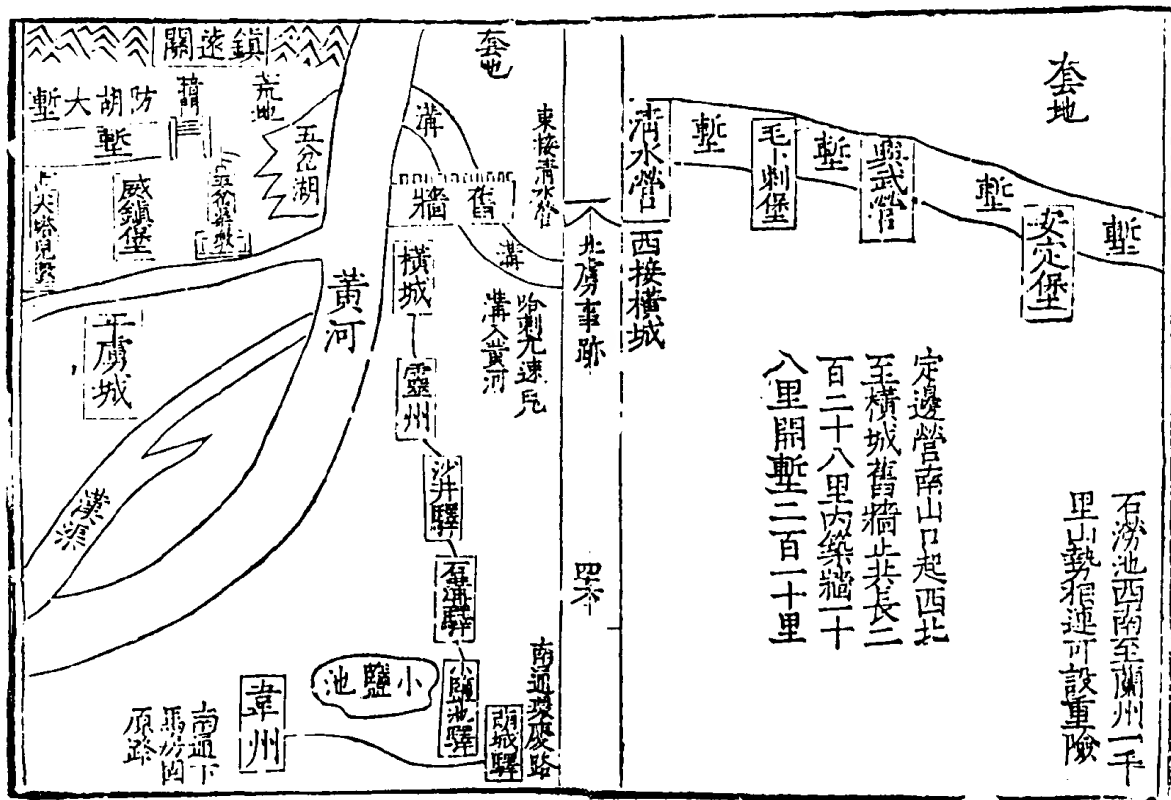 套地
塹
安定堡
塹
興武營
塹
毛卜剌堡
塹
清水營
西接橫城
石澇池西南至蘭州一千
里山勢相連可設重險
定邊營南山口起西北
至橫城舊墻止共長二
百二十八里內築墻一十
八里開塹二百一十里
北虜事跡
四六
套地
東接清水營
溝
舊墻
溝
哈剌兀速兒
溝入黃河
橫城
靈州
沙井驛
石溝驛
小鹽池驛
萌城驛
南通環慶路
小鹽池
韋州
南通下
馬房西
原路
黃河
漢渠
鎮遠關
荒地
五岔湖
墻三
防胡大塹
塹
威鎮堡
平虜城